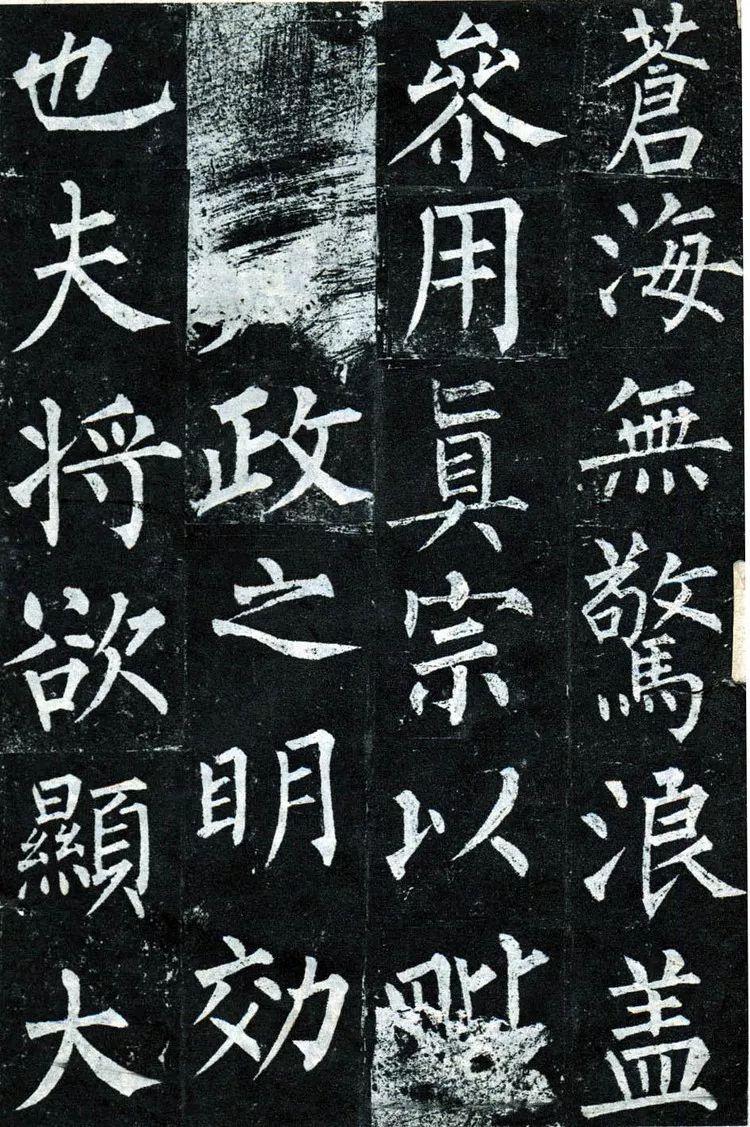 蒼海無驚浪盖
叅用真宗以毗
政之明効
也夫将欲顯大